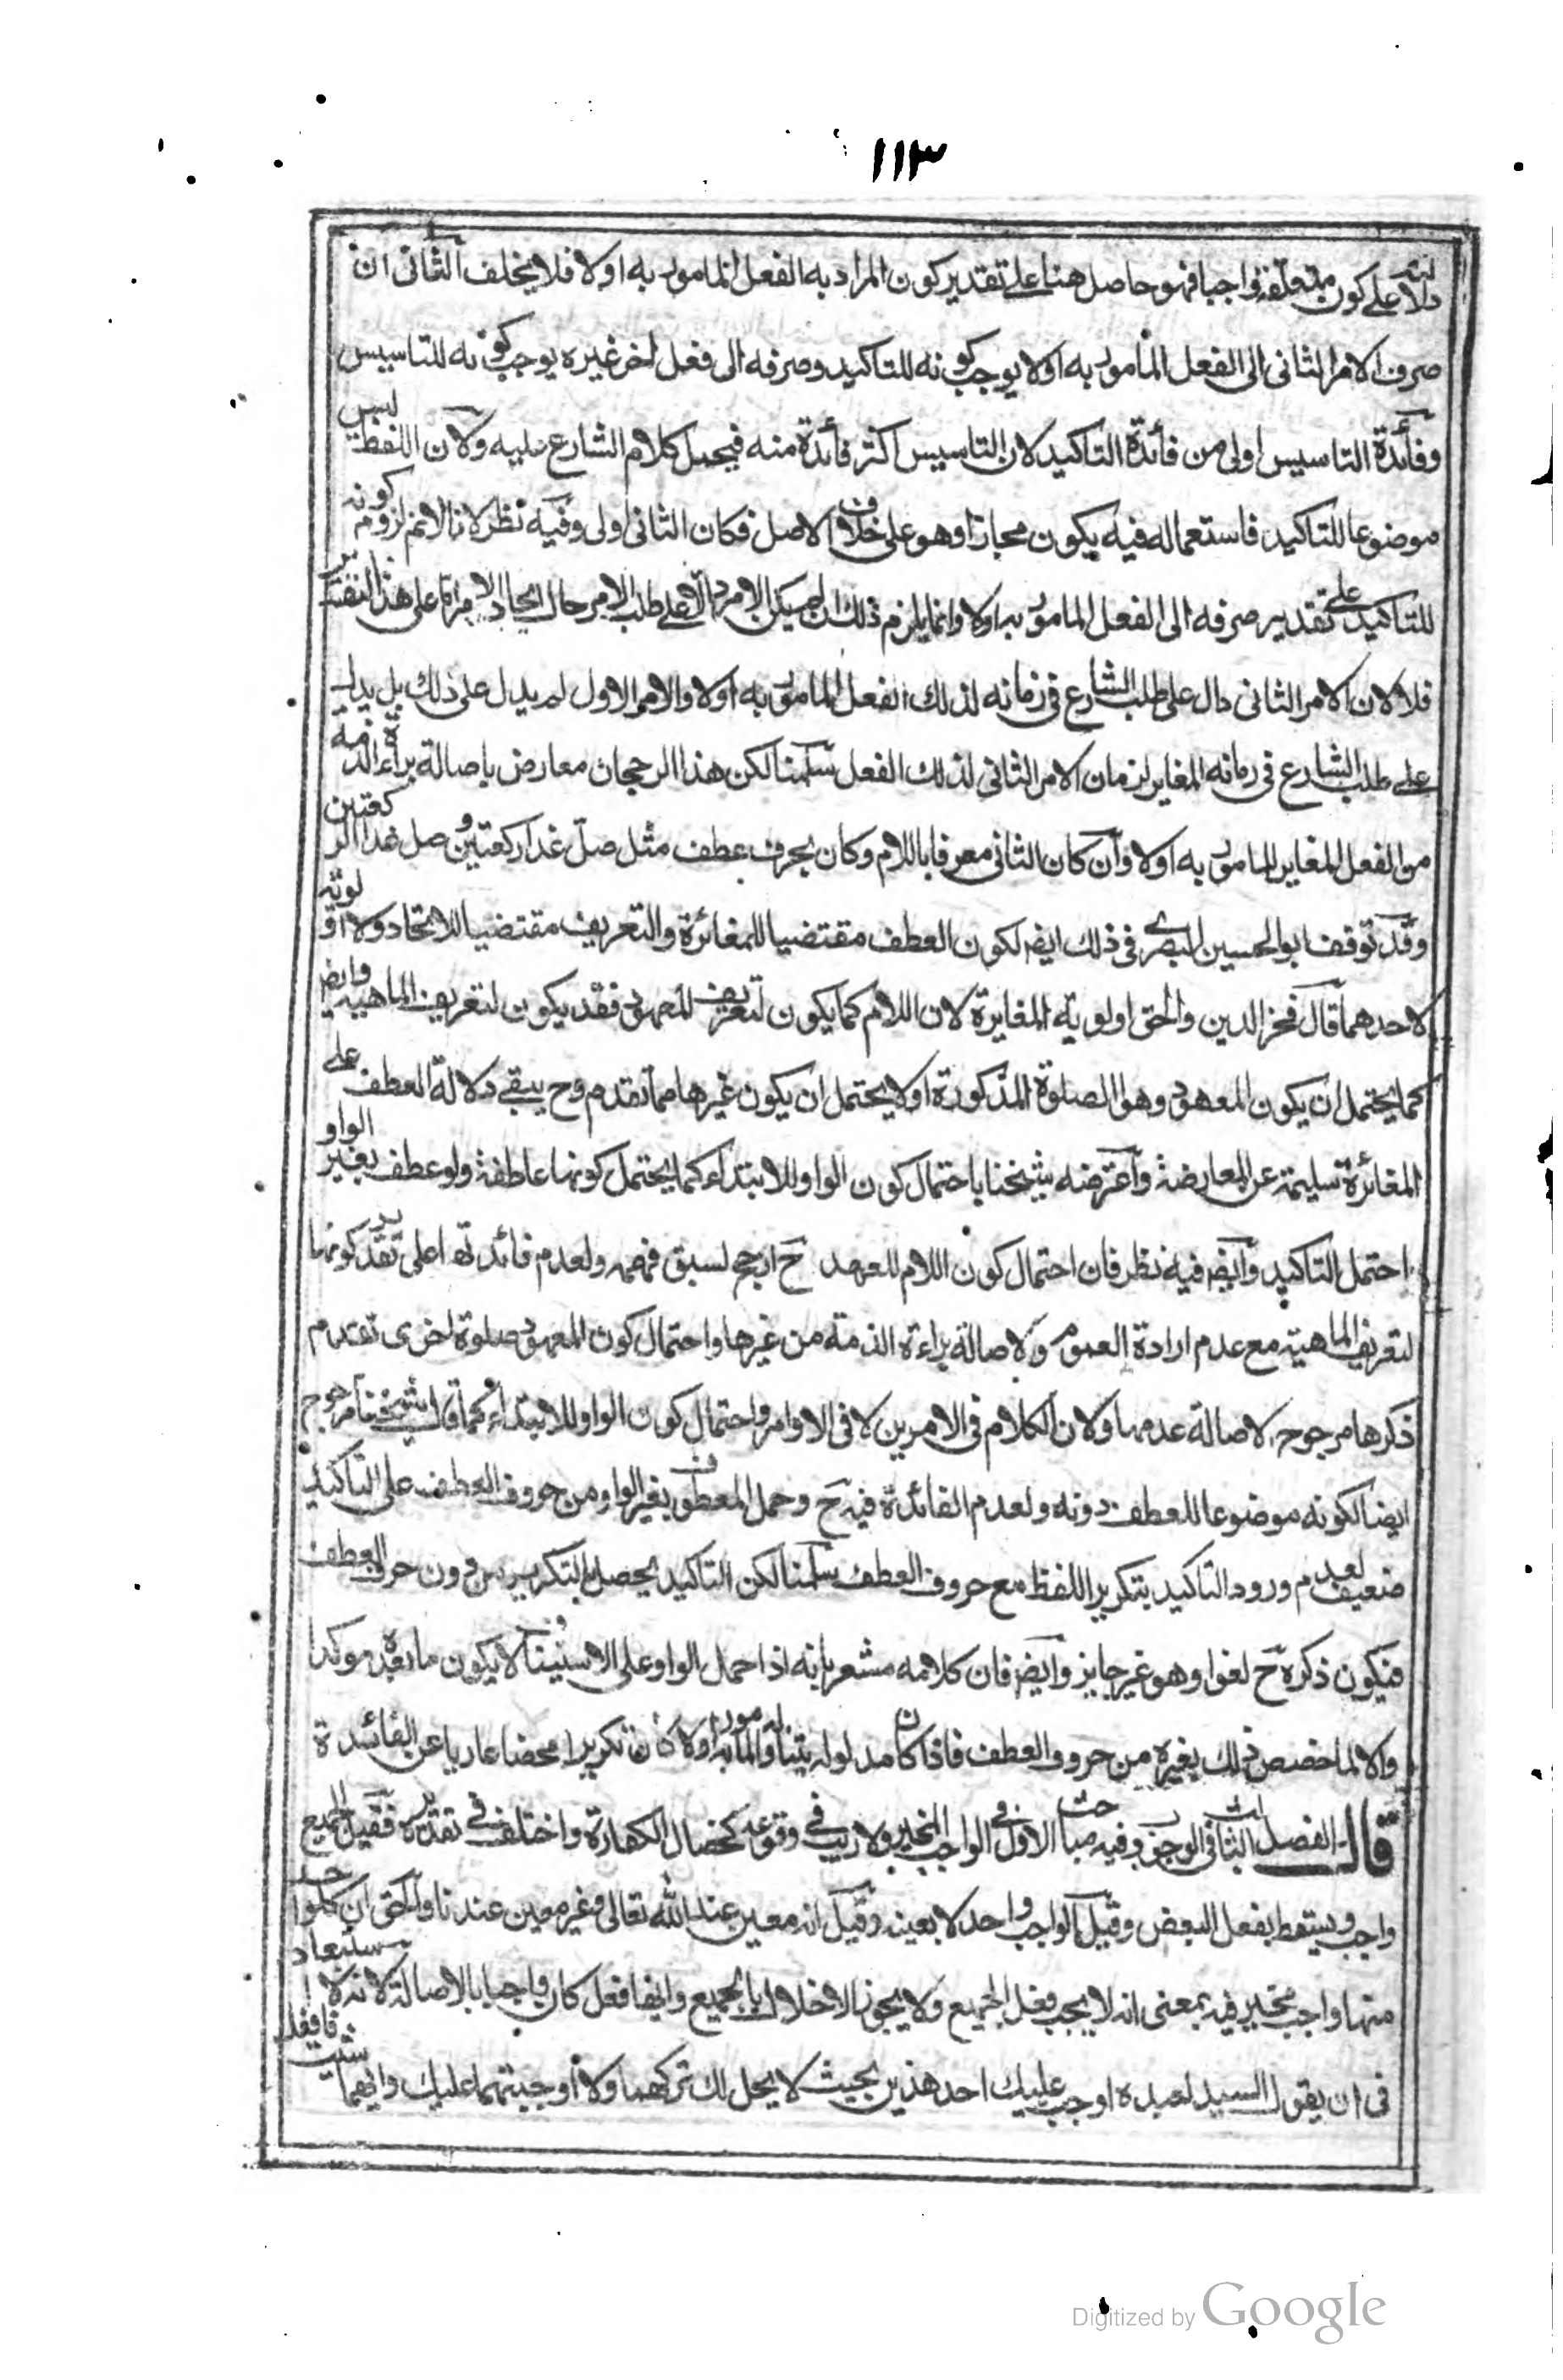 ١١٣
دلالته على كون متعلقه واجبا فهو حاصل هنا على تقدير كون المراد به الفعل المامور به اولا فلا يخلف الثانى ان
صرف الامر الثانى الى الفعل المامور به اولا يوجب كونه للتاكيد وصرفه الى فعل اخر غيره يوجب كونه للتاسيس
وفائدة التاسيس اولى من فائدة التاكيد لان التاسيس اكثر فائدة منه فيحمل كلام الشارع عليه ولان اللفظ ليس
موضوعا للتاكيد فاستعماله فيه يكون مجازا وهو على خلاف الاصل فكان الثانى اولى وفيه نظر لانا لانم لزوم كونه
للتاكيد على تقدير صرفه الى الفعل المامور به اولا وانما يلزم ذلك ان لم يكن الامر دالا على طلب الامر حال ايجاد الامر اما على هذا التقدير
فلا لان الامر الثانى دال على طلب الشارع فى زمانه لذلك الفعل المامور به اولا والامر الاول لم يدل على ذلك بل يدل
على طلب الشارع فى زمانه المغاير لزمان الامر الثانى لذلك الفعل سلمنا لكن هذا الرجحان معارض باصالة براءة الذمة
من الفعل المغاير للمامور به اولا وان كان الثانى معرفا باللام وكان بحرف عطف مثل صل غدا ركعتين وصل غدا الركعتين
وقد توقف ابو الحسين البصرى فى ذلك ايض لكون العطف مقتضيا للمغائرة والتعريف مقتضيا للاتحاد ولا اولوية
لاحدهما قال فخر الدين والحق اولوية المغايرة لان اللام كما يكون لتعريف المعهود فقد يكون لتعريف الماهية وايض
كما يحتمل ان يكون المعهود وهو الصلوة المذكورة اولا يحتمل ان يكون غيرها مما تقدم وح يبقى دلالة العطف على
المغائرة سليمة عن المعارضة واعترضه شيخنا باحتمال كون الواو للابتداء كما يحتمل كونها عاطفة ولو عطف بغير الواو
احتمل التاكيد وايض فيه نظر فان احتمال كون اللام للعهد ح ارجح لسبق فهمه ولعدم فائدتها على تقدير كونها
لتعريف الماهية مع عدم ارادة العموم ولاصالة براءة الذمة من غيرها واحتمال كون المعهود صلوة اخرى تقدم
ذكرها مرجوح لاصالة عدمها ولان الكلام فى الامرين لا فى الاوامر واحتمال كون الواو للابتداء كما قال شيخنا مرجوح
ايضا لكونه موضوعا للعطف دونه ولعدم الفائدة فيه ح وحمل المعطوف بغير الواو من حروف العطف على التاكيد
ضعيف لعدم ورود التاكيد بتكرير اللفظ مع حروف العطف سلمنا لكن التاكيد يحصل بالتكرير من دون حرف العطف
فيكون ذكره ح لغوا وهو غير جايز وايض فان كلامه مشعر بانه اذا حمل الواو على الاستيناف لا يكون ما بعده موكدا
والا لما خصص ذلك بغيره من حروف العطف فاذا كان مدلوله يتناول المامور به اولا كان تكريرا محضا عاريا عن الفائدة
قال الفصل الثالث فى الوجوب وفيه مباحث الاول فى الواجب المخير ولا ريب فى وقوعه كخصال الكفارة واختلف فى تقديره فقيل الجميع
واجب ويسقط بفعل البعض وقيل الواجب واحد لا بعينه وقيل انه معين عند الله تعالى وغير معين عندنا والحق ان كل واحد
منها واجب مخير فيه بمعنى انه لا يجب فعل الجميع ولا يجوز الاخلال بالجميع وايها فعل كان واجبا بالاصالة لانه لا استبعاد
فى ان يقول السيد لعبده اوجب عليك احد هذين بحيث لا يحل لك تركهما ولا اوجبتهما عليك وايهما شئت فافعل
Digitized by Google